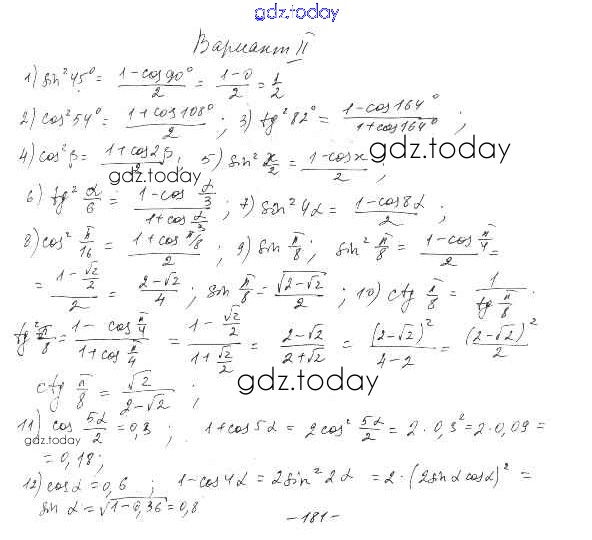 gdz.today
Вариант II
1) sin²45° = (1-cos90°)/2 = (1-0)/2 = 1/2
2) cos²54° = (1+cos108°)/2 ; 3) tg²82° = (1-cos164°)/(1+cos164°) ;
gdz.today
4) cos²β = (1+cos2β)/2, 5) sin² x/2 = (1-cosx)/2 ;
gdz.today
6) tg² α/6 = (1-cos α/3)/(1+cos α/3) ; 7) sin²4α = (1-cos8α)/2 ;
8) cos² π/16 = (1+cos π/8)/2 ; 9) sin π/8 ; sin² π/8 = (1-cos π/4)/2 =
= (1-√2/2)/2 = (2-√2)/4 ; sin π/8 = √(2-√2)/2 ; 10) ctg π/8 = 1/(tg π/8) .
tg² π/8 = (1-cos π/4)/(1+cos π/4) = (1-√2/2)/(1+√2/2) = (2-√2)/(2+√2) = (2-√2)²/(4-2) = (2-√2)²/2
ctg π/8 = √2/(2-√2) ;
gdz.today
11) cos 5α/2 = 0,3 ; 1+cos5α = 2cos² 5α/2 = 2·0,3² = 2·0,09 =
gdz.today
= 0,18 ;
12) cosα = 0,6 ; 1-cos4α = 2sin²2α = 2·(2sinα cosα)² =
sin α = √(1-0,36) = 0,8
-181-